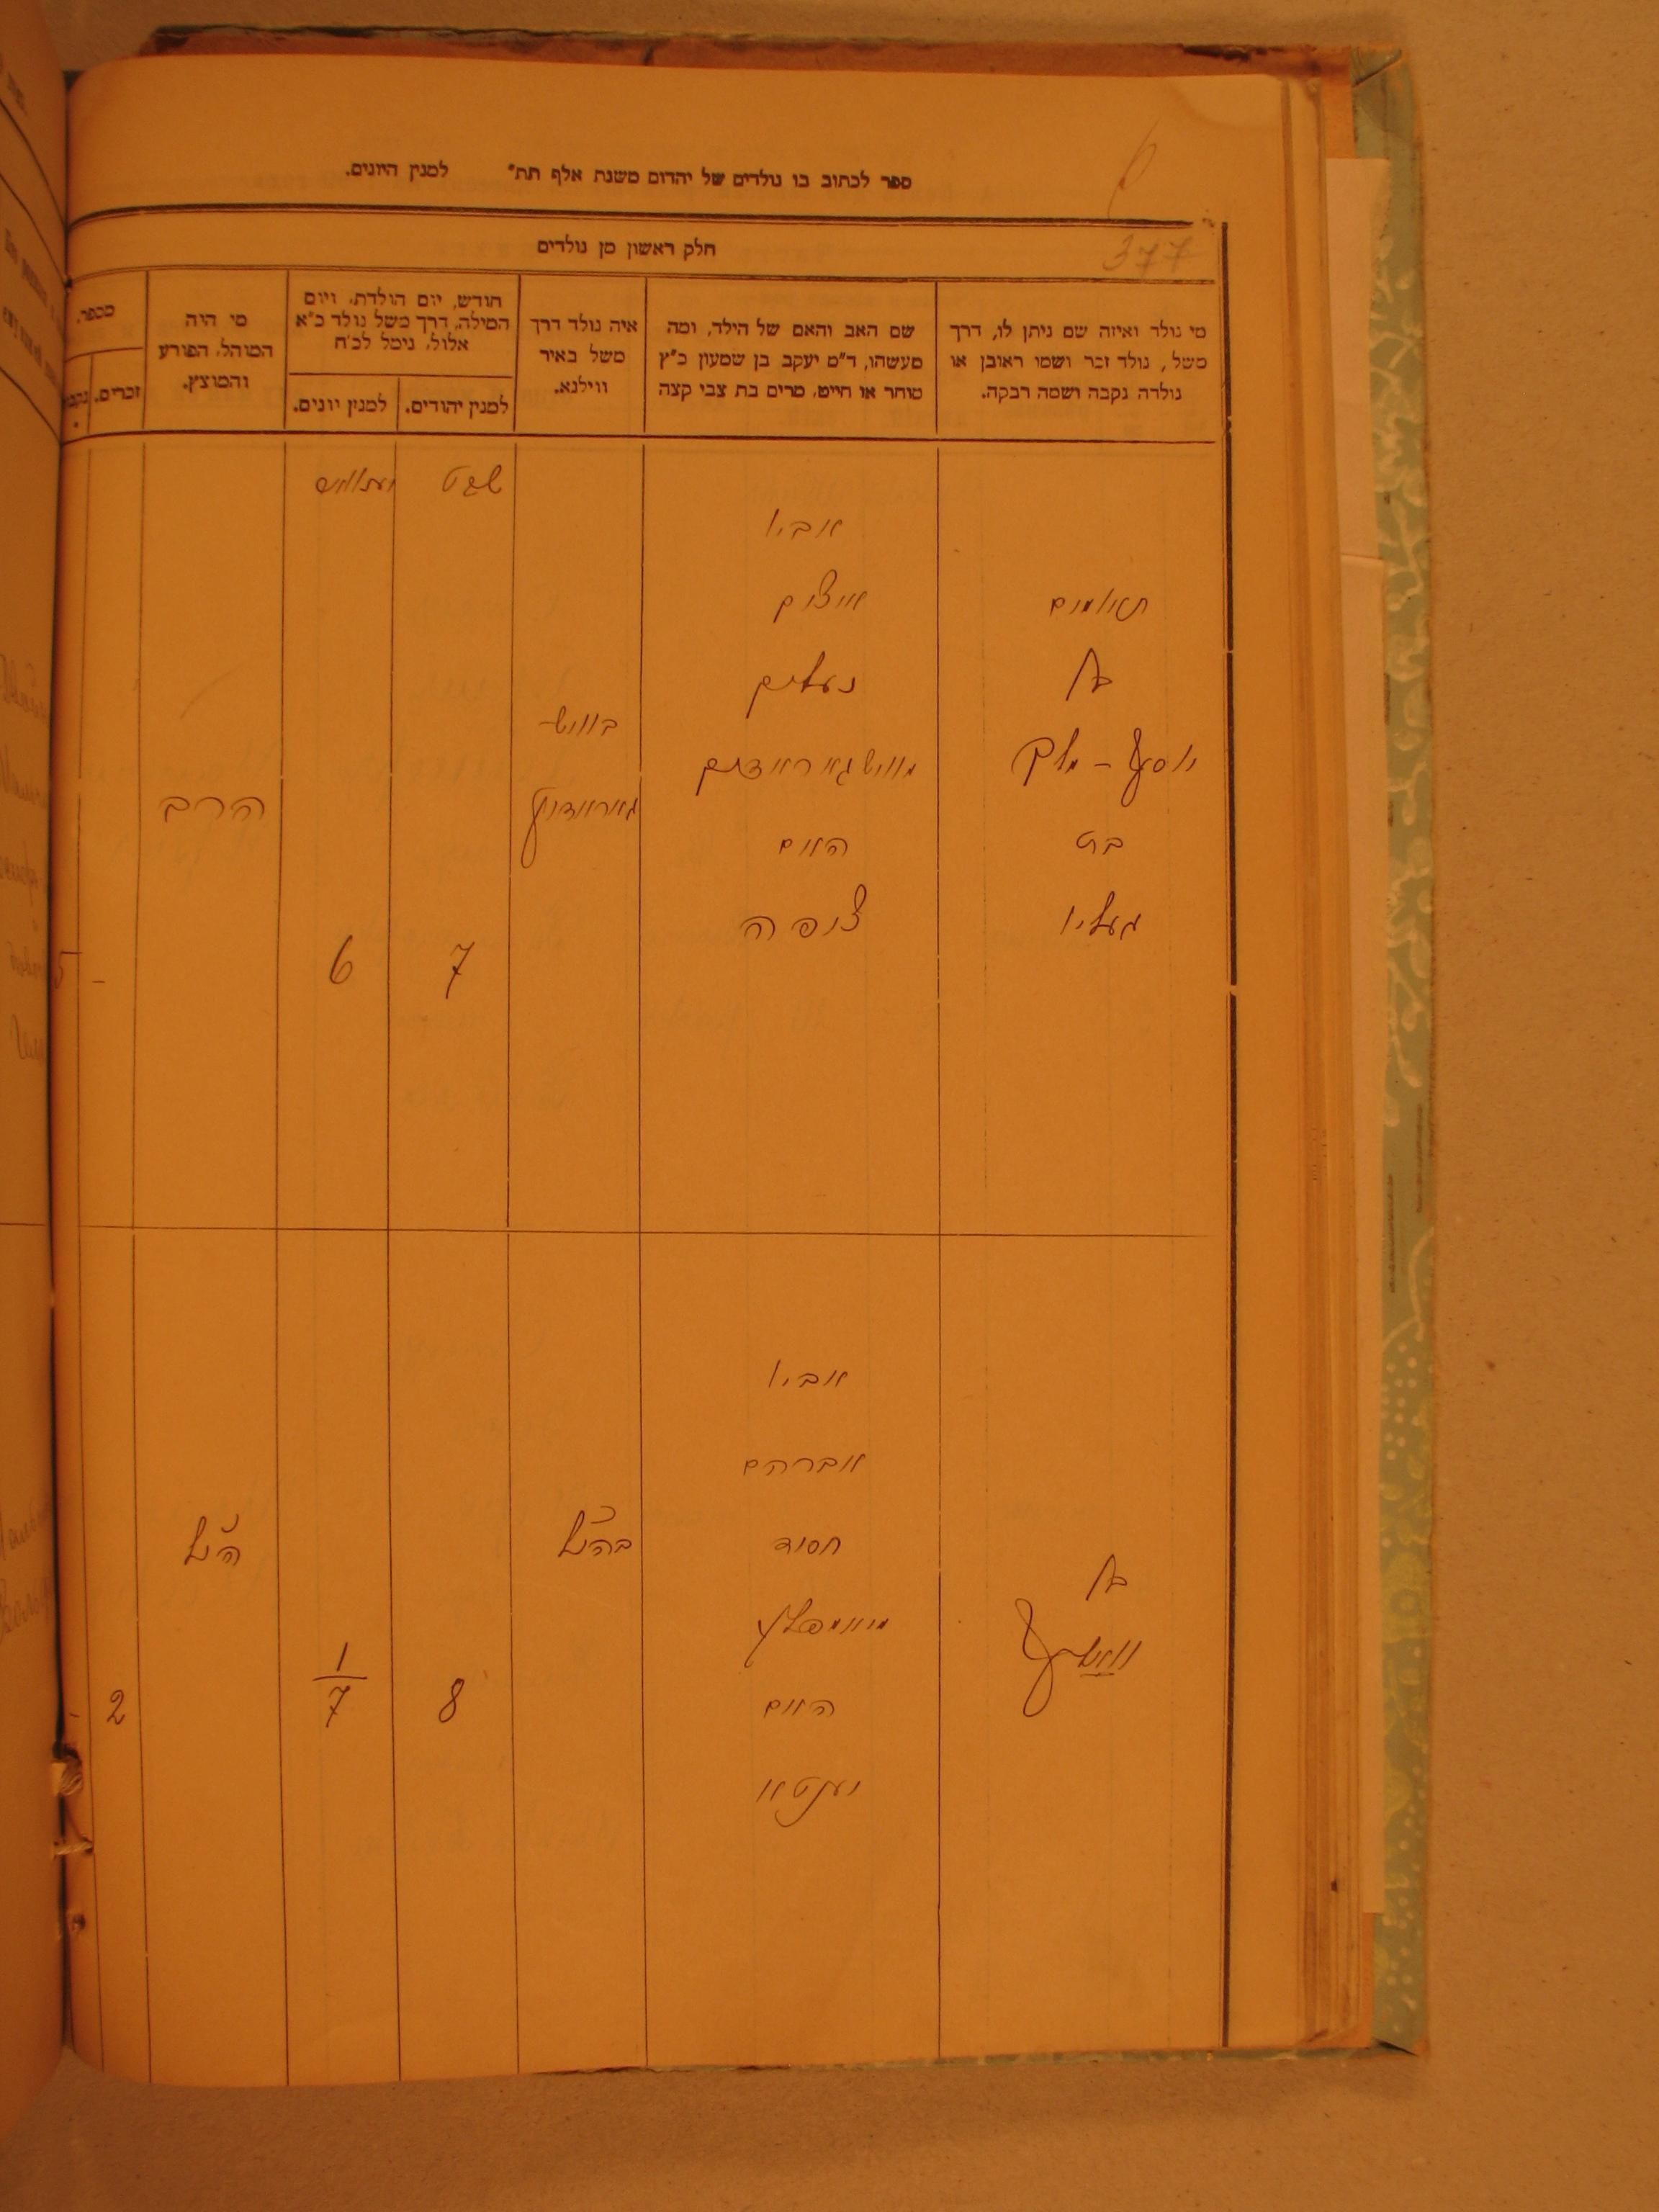 ספר לכתוב בו נולדים של יהדום משנת אלף תת״ למנין היונים.
377
חלק ראשון מן נולדים
מי נולד ואיזה שם ניתן לו, דרך
משל, נולד זכר ושמו ראובן או
נולדה נקבה ושמה רבקה.
שם האב והאם של הילד, ומה
מעשהו, ד״מ יעקב בן שמעון כ״ץ
סוחר או חייט, מרים בת צבי קצה
איה נולד דרך
משל באיר
ווילנא.
חודש, יום הולדת, ויום
המילה, דרך משל נולד כ״א
אלול, נימל לכ״ח
למנין יהודים.
למנין יונים.
מי היה
המוהל, הפורע
והמוצץ.
מספר.
זכרים.
שבט
תאומים
בן
יוסף - מלך
בת
אביו
אייציק
האם
ציפה
בוויש
הרב
7
6
5
-
בן
וואלף
אביו
אברהם
חסיד
האם
יענטא
בהנ״ל
8
1
7
הנ״ל
2
-